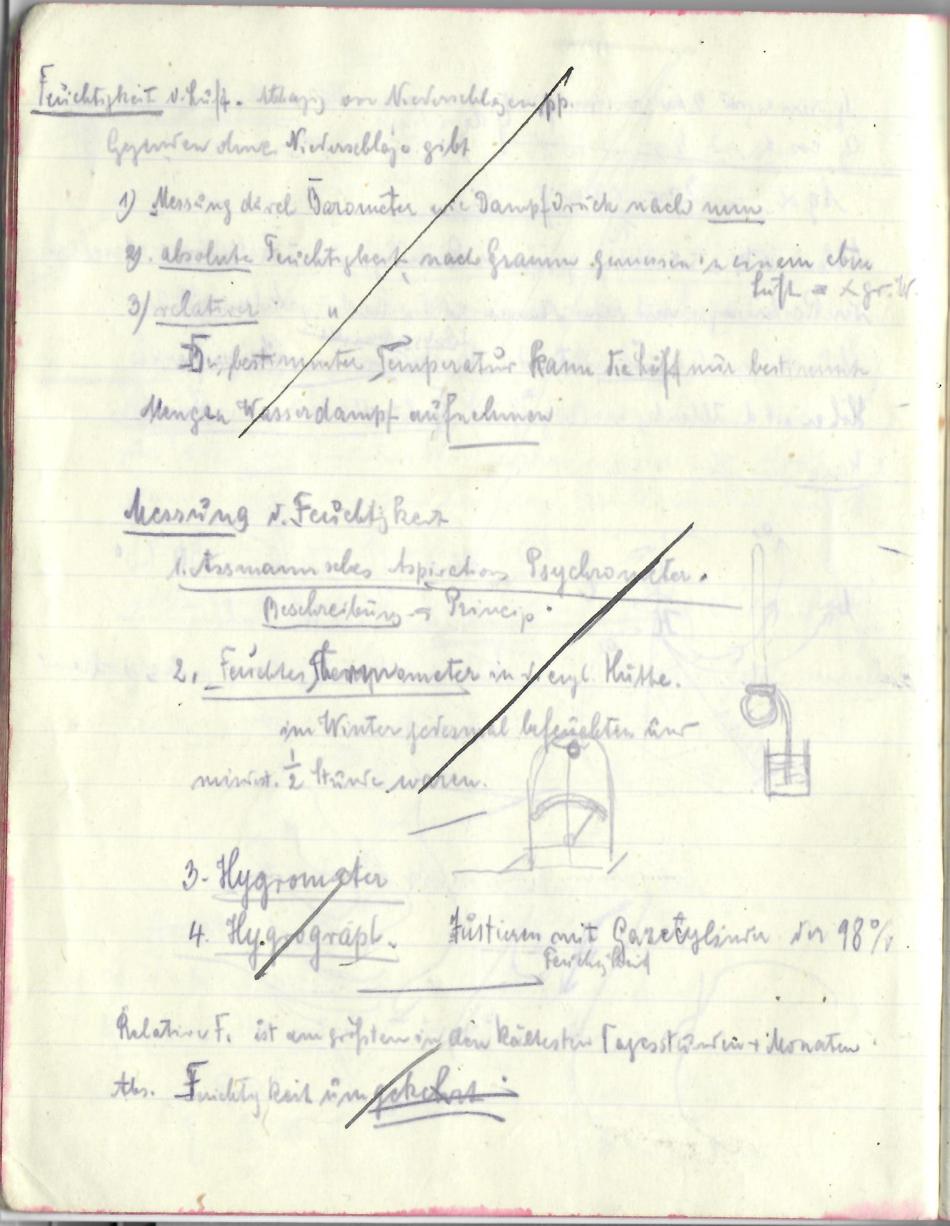 Feuchtigkeit d. Luft. Abhägig von Niederschlägen pp.
Gegenden ohne Niederschläge gibt
1) Messung durch Barometer wie Dampfdruck nach mm
2). absolute Feuchtigkeit nach Gramm gemessen in einem cbm
Luft = x gr. W.
3) relative "
Bei bestimmter Temperatur kann die Luft nur bestimmte
Mengen Wasserdampf aufnehmen
Messung d. Feuchtigkeit
1. Assmannsches Aspirations Psychrometer.
Beschreibung Princip.
2. Feuchtes Thermometer in d. engl. Hütte.
im Winter jedesmal befeuchten und
mindest. ½ Stunde warten.
3. Hygrometer
4. Hygrograph. Justieren mit Gazezylinder der 98%
Feuchtigkeit
Relative F. ist am größten in den kältesten Tagesstunden + Monaten
Abs. Feuchtigkeit umgekehrt